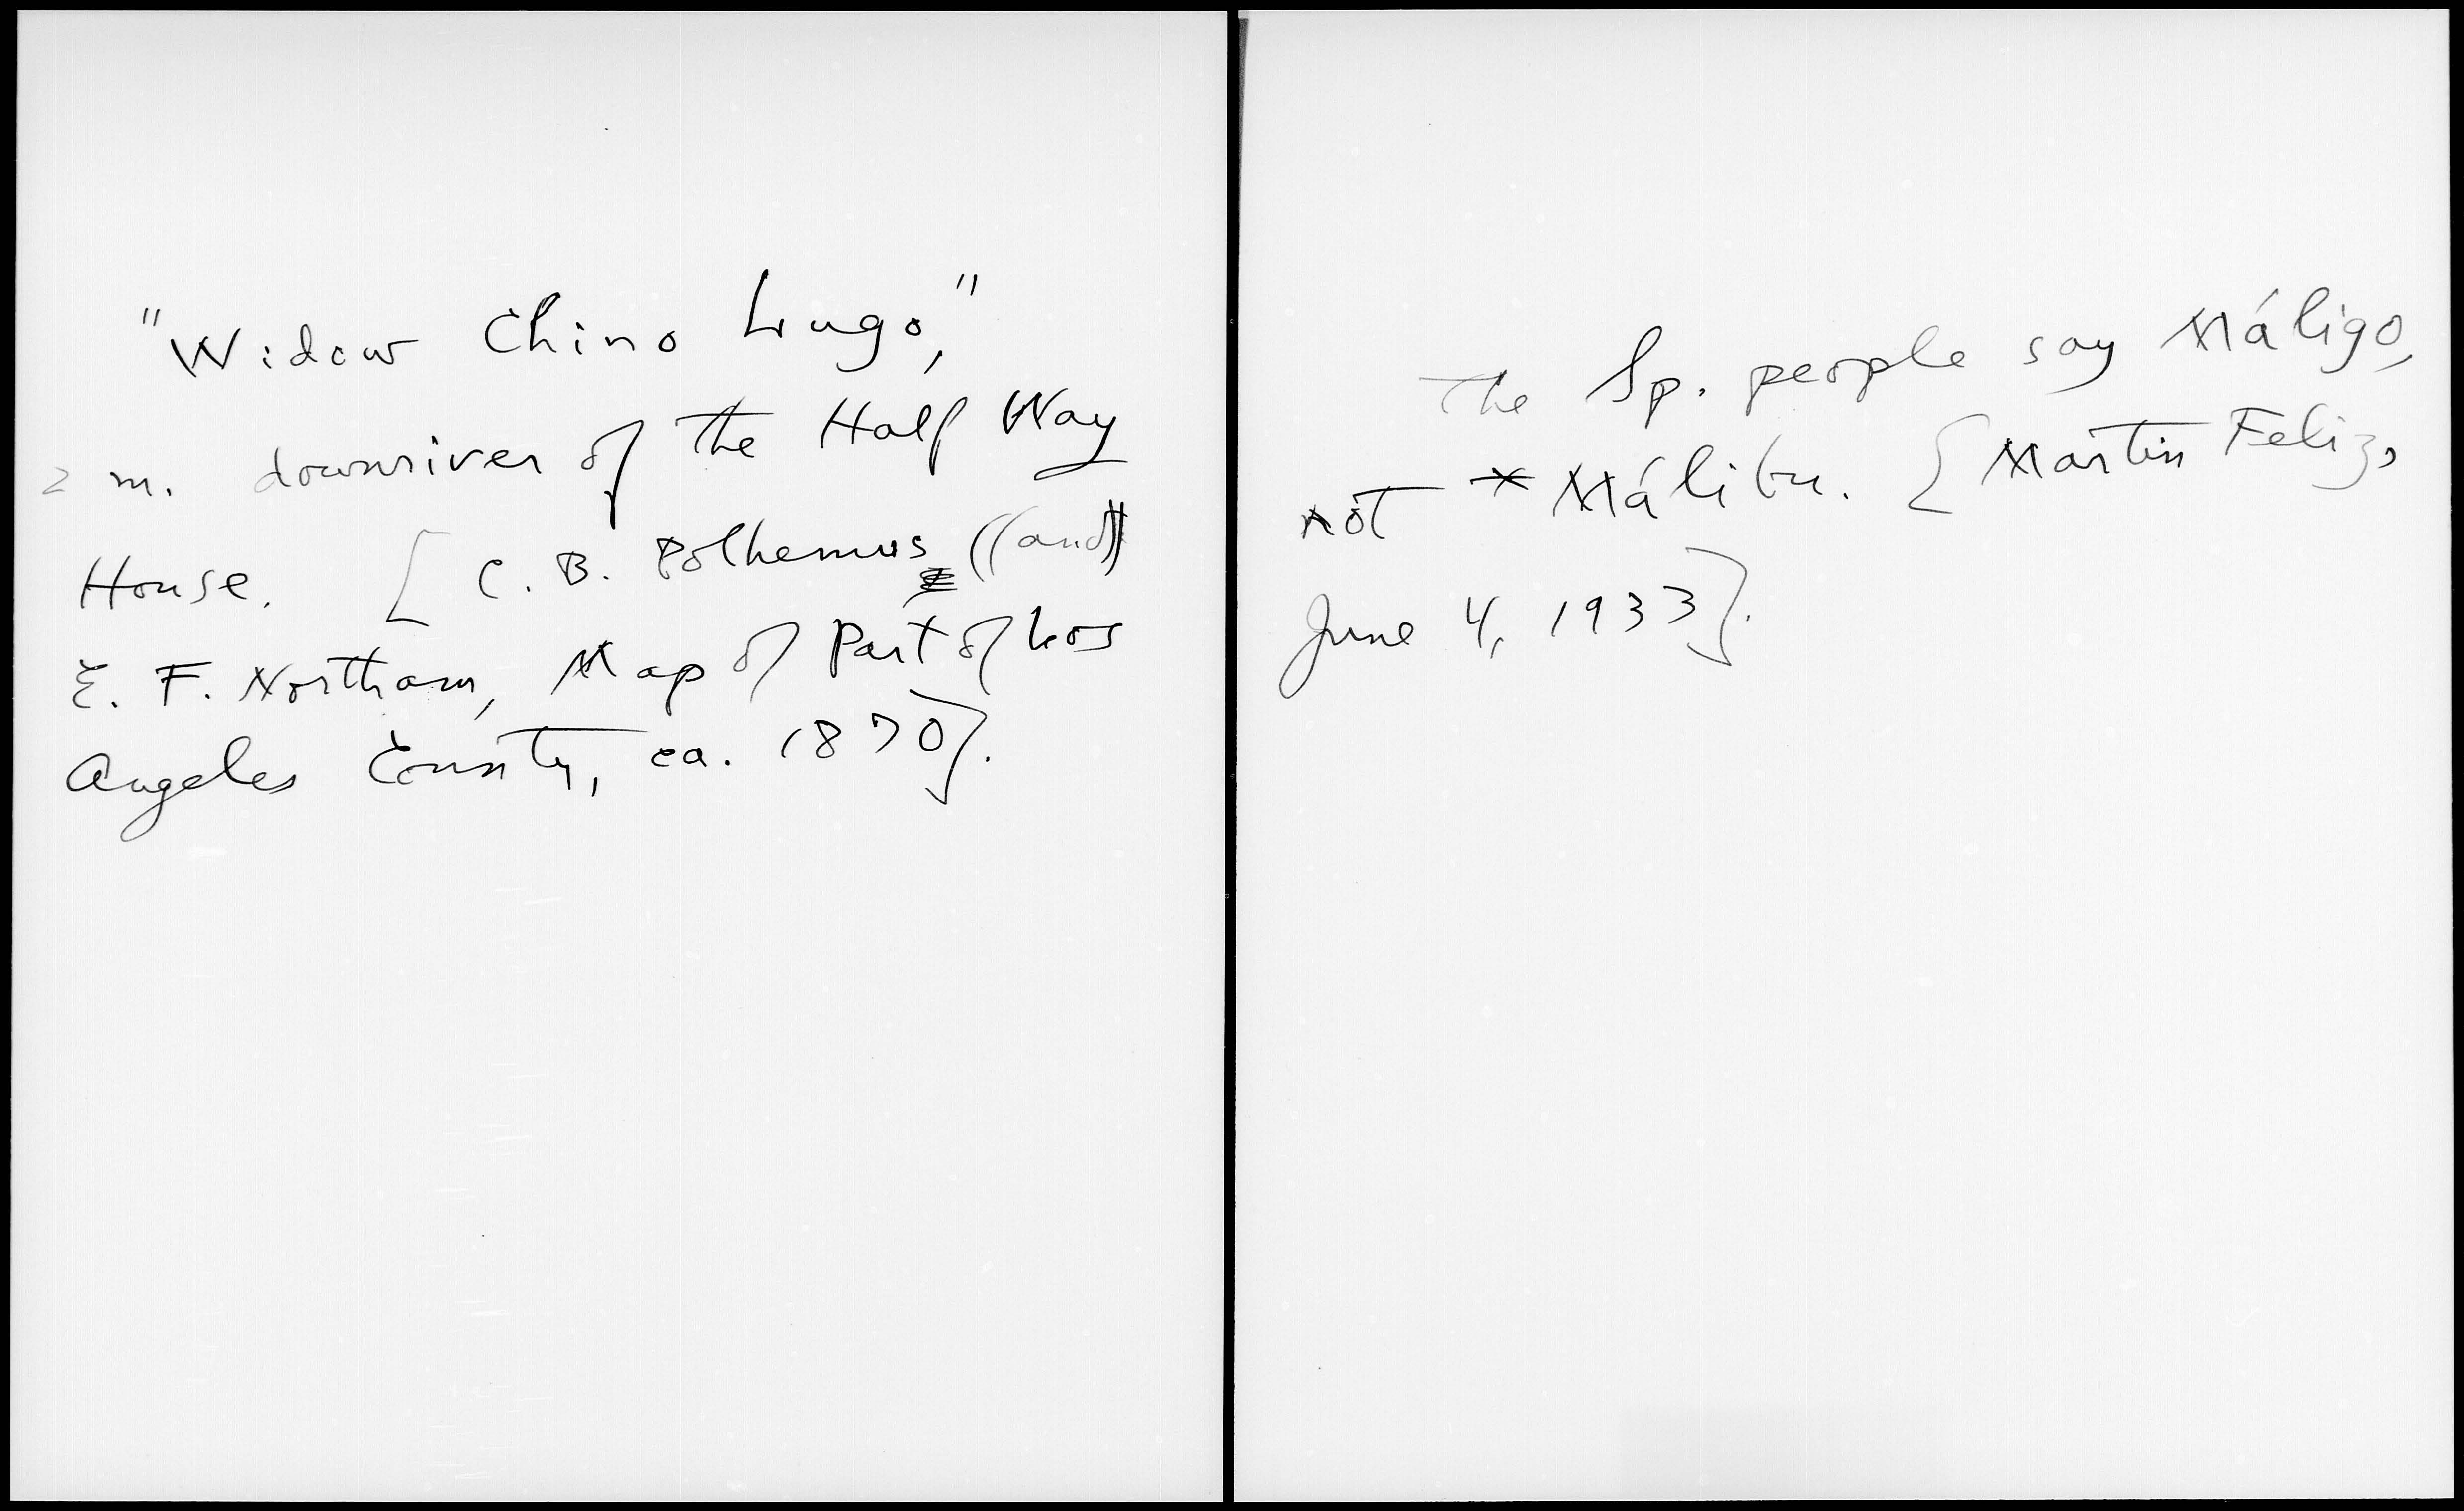 "Widow Chino Lugo,"
2 m. downriver of the Half Way
House. [C. B. Polhemus ((and))
E. F. Northam, Map of Part of Los
Angeles County, ca. 1870].
The Sp. people say Máligo,
not * Málibu. [Martin Feliz,
June 4, 1933].